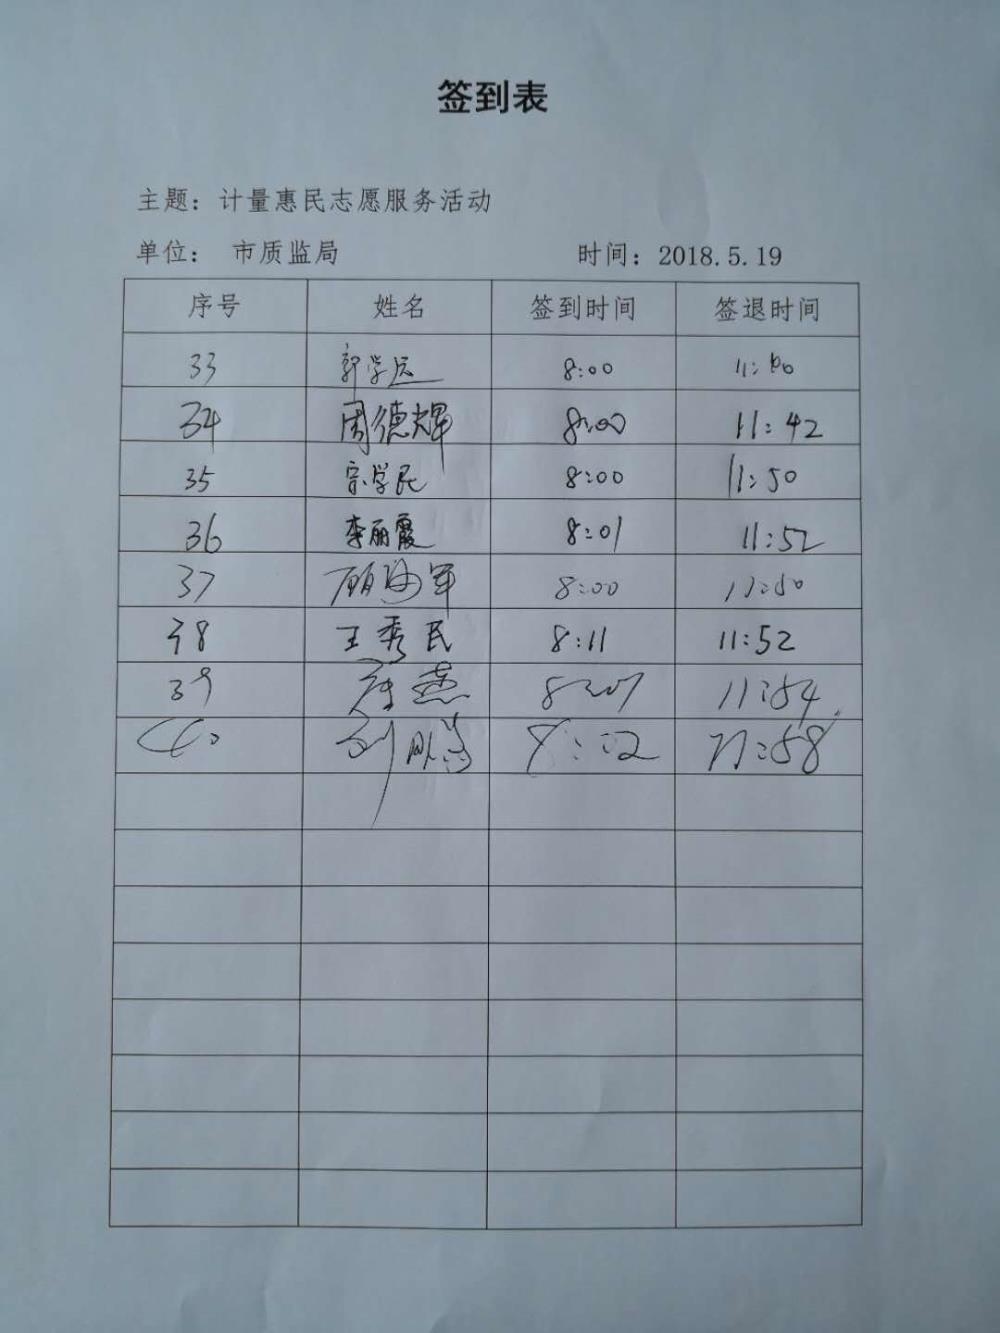 签到表
主题：计量惠民志愿服务活动
单位： 市质监局 时间：2018.5.19
序号 姓名 签到时间 签退时间
33 郭学运 8:00
34 周德辉 8:00 11:42
35 宗学民 8:00 11:50
36 李丽霞 8:01 11:52
37 顾海军 8:00 11:50
38 王秀民 8:11 11:52
39 唐燕 8:01 11:54
40 8:02 11:58